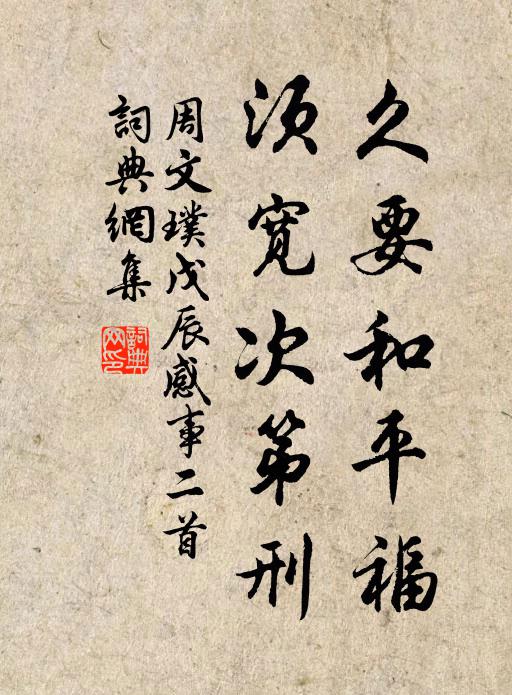 久要和平福
須寛次第刑
周文璞戊辰感事二首
詞典網集
詞典
网印